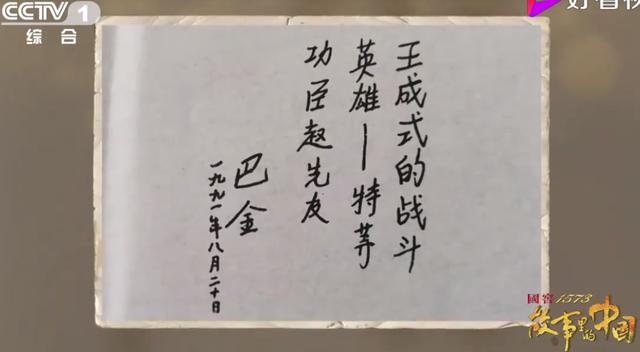 CCTV 1
综合
好看视
王成式的战斗
英雄—特等
功臣赵先友
巴金
一九九一年八月二十日
國窖1573
故事里的中国